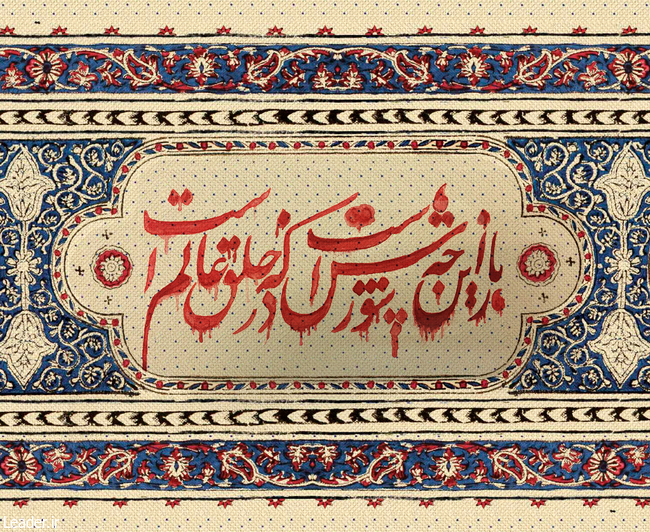 باز این چه شورش است که در خلق عالم است
Leader.ir